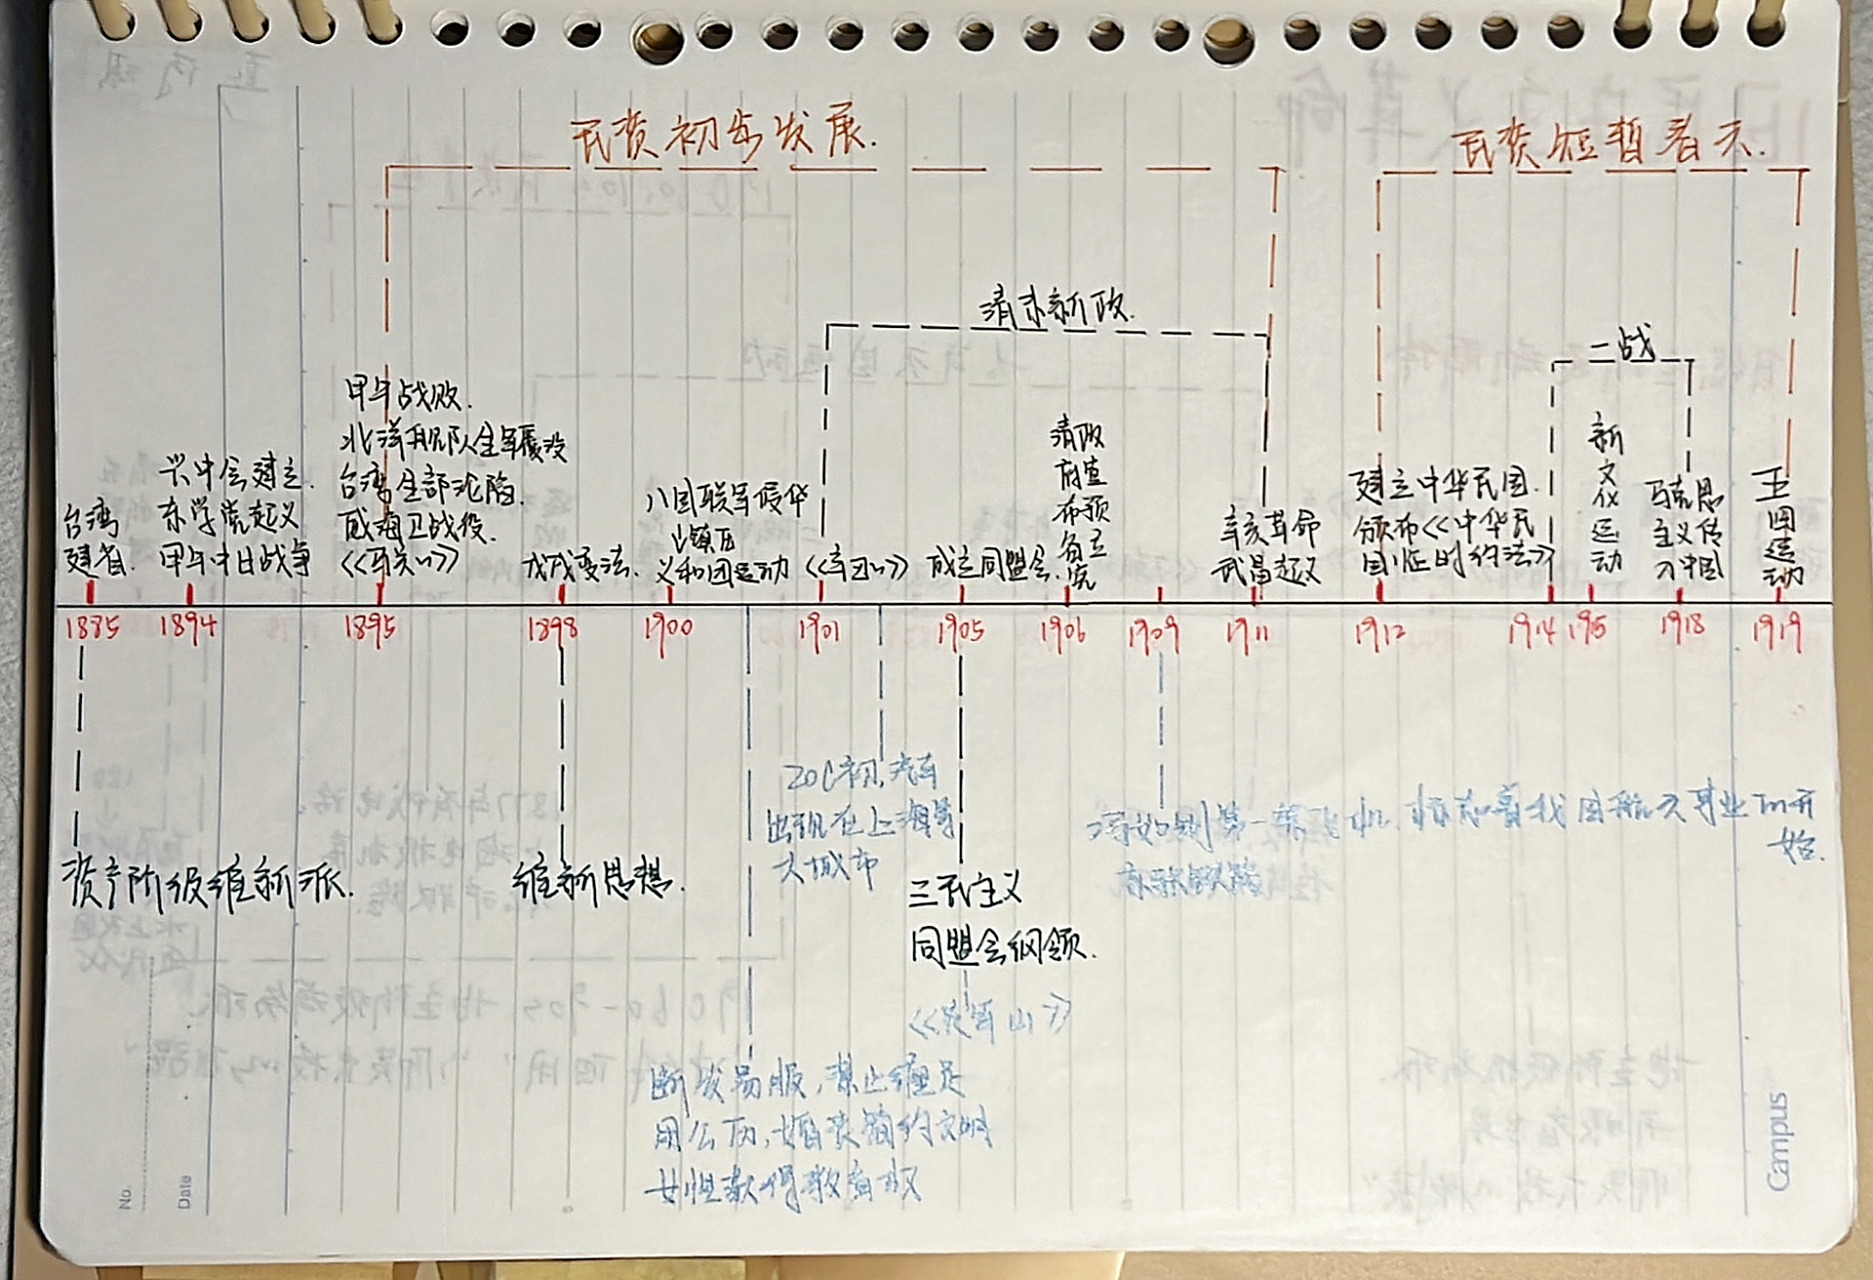 民资初步发展.
民资短暂春天.
清末新政.
二战
甲午战败.
北洋舰队全军覆没
台湾全部沦陷.
威海卫战役.
《马关~》
台湾
建省.
兴中会建立.
东学党起义
甲午中日战争
戊戌变法.
八国联军侵华
镇压
义和团运动
《辛丑~》
成立同盟会.
清政
府宣
布预
备立
宪
辛亥革命
武昌起义
建立中华民国.
颁布《中华民
国临时约法》
新
文
化
运
动
马克思
主义传
入中国
五
四
运
动
1885
1894
1895
1898
1900
1901
1905
1906
1909
1911
1912
1914
1915
1918
1919
资产阶级维新派.
维新思想.
20C初,汽车
出现在上海等
大城市
三民主义
同盟会纲领.
《定军山》
冯如制第一架飞机,标志着我国航天事业的开
始.
京张铁路
断发易服,禁止缠足
用公历,婚丧简约文明
女性获得教育权
No.
Date
Campus